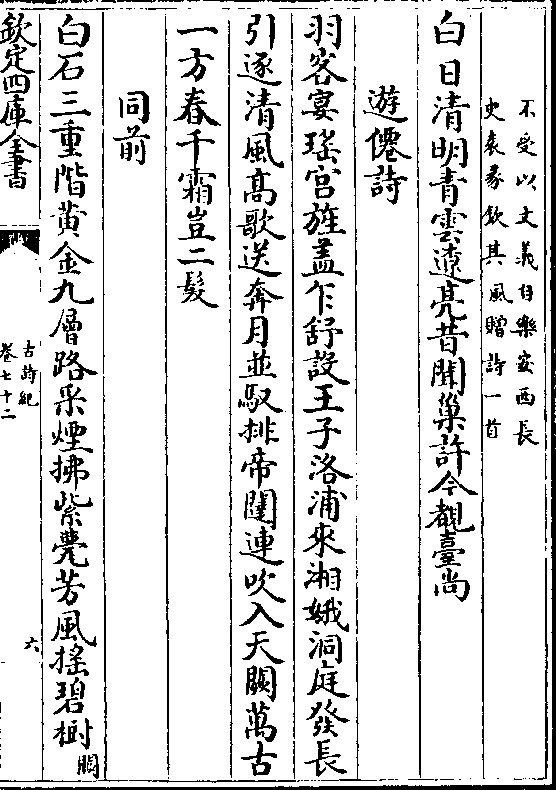 不受以文義自樂安西長
史袁彖欽其風贈詩一首
白日清明青雲遼亮昔聞巢許今覩臺尚
遊僊詩
羽客宴瑤宮旌蓋乍舒設王子洛浦來湘娥洞庭發長
引逐清風高歌送奔月並馭排帝閽連吹入天闕萬古
一方春千霜豈二髮
同前
白石三重階黄金九層路采煙拂紫甍芳風搖碧樹
欽定四庫全書
古詩紀
卷七十二
六